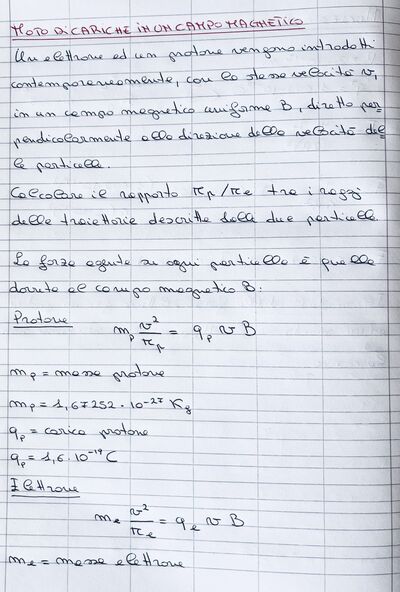 MOTO DI CARICHE IN UN CAMPO MAGNETICO
Un elettrone ed un protone vengono introdotti
contemporaneamente, con la stessa velocità v,
in un campo magnetico uniforme B, diretto per
pendicolarmente alla direzione della velocità del
le particelle.
Calcolare il rapporto r_p/r_e tra i raggi
delle traiettorie descritte dalle due particelle.
La forza agente su ogni particella è quella
dovuta al campo magnetico B:
Protone
m_p v²/r_p = q_p v B
m_p = massa protone
m_p = 1,67252 · 10⁻²⁷ Kg
q_p = carica protone
q_p = 1,6 · 10⁻¹⁹ C
Elettrone
m_e v²/r_e = q_e v B
m_e = massa elettrone